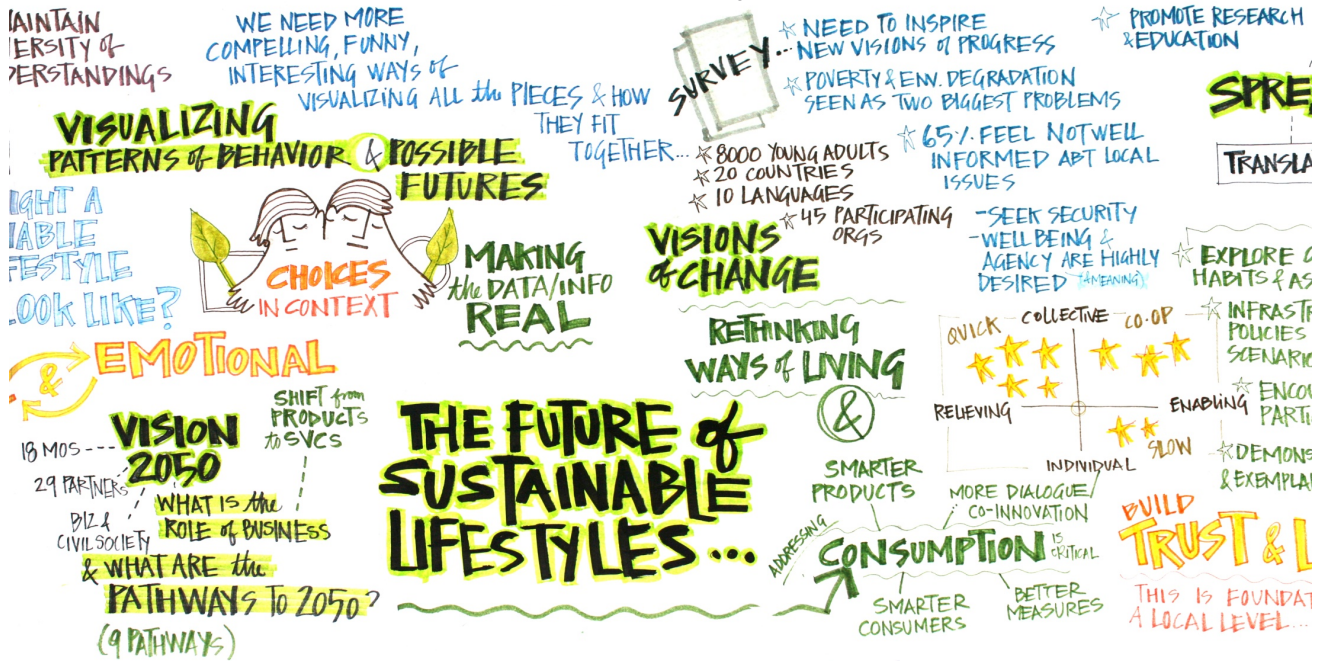 AINTAIN
ERSITY of
DERSTANDINGS
WE NEED MORE
COMPELLING, FUNNY,
INTERESTING WAYS of
VISUALIZING ALL the PIECES & HOW
THEY FIT
TOGETHER...
VISUALIZING
PATTERNS of BEHAVIOR & POSSIBLE
FUTURES
IGHT A
ABLE
FESTYLE
LOOK LIKE?
CHOICES
IN CONTEXT
MAKING
the DATA/INFO
REAL
&
EMOTIONAL
VISION
2050
18 MOS---
29 PARTNERS
BIZ &
CIVIL SOCIETY
SHIFT from
PRODUCTS
to SVCS
WHAT IS the
ROLE of BUSINESS
& WHAT ARE the
PATHWAYS TO 2050?
(9 PATHWAYS)
THE FUTURE of
SUSTAINABLE
LIFESTYLES...
SURVEY...
NEED TO INSPIRE
NEW VISIONS of PROGRESS
POVERTY & ENV. DEGRADATION
SEEN AS TWO BIGGEST PROBLEMS
65% FEEL NOT WELL
INFORMED ABT LOCAL
ISSUES
8000 YOUNG ADULTS
20 COUNTRIES
10 LANGUAGES
45 PARTICIPATING
ORGS
-SEEK SECURITY
-WELLBEING &
AGENCY ARE HIGHLY
DESIRED (+MEANING)
VISIONS
of CHANGE
RETHINKING
WAYS of LIVING
&
QUICK
COLLECTIVE
CO-OP
RELIEVING
ENABLING
SLOW
INDIVIDUAL
SMARTER
PRODUCTS
MORE DIALOGUE/
CO-INNOVATION
ADDRESSING
CONSUMPTION IS
CRITICAL
SMARTER
CONSUMERS
BETTER
MEASURES
PROMOTE RESEARCH
& EDUCATION
SPRE
TRANSLA
EXPLORE
HABITS & AS
INFRASTR
POLICIES
SCENARIO
ENCOU
PARTI
DEMONS
& EXEMPLA
BUILD
TRUST & L
THIS IS FOUNDAT
A LOCAL LEVEL...